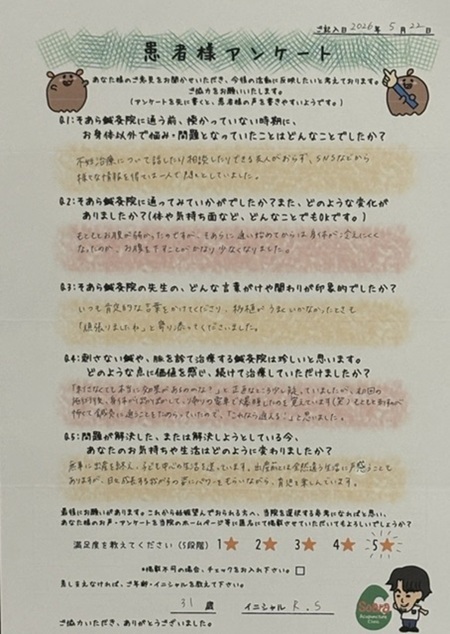 ご記入日 2026年 5月 22日
患者様アンケート
あなた様のご意見をお聞かせいただき、今後の活動に反映したいと考えております。
ご協力をお願いいたします。
(アンケートを先に書くと、患者様の声を書きやすいようです。)
Q.1:そあら鍼灸院に通う前、授かっていない時期に、
お身体以外で悩み・問題となっていたことはどんなことでしたか?
不妊治療について話したり相談したりできる友人がおらず、SNSなどから
様々な情報を得ては一人で悶々としていました。
Q.2:そあら鍼灸院に通ってみていかがでしたか?また、どのような変化が
ありましたか?(体や気持ち面など、どんなことでもOKです。)
もともとお腹が弱かったのですが、そあらに通い始めてからは身体が冷えにくく
なったのか、お腹を下すことがかなり少なくなりました。
Q.3:そあら鍼灸院の先生の、どんな言葉がけや関わりが印象的でしたか?
いつも肯定的な言葉をかけてくださり、移植がうまくいかなかったときも
「頑張りましたね」と寄り添ってくださいました。
Q.4:刺さない鍼や、脈を診て治療する鍼灸院は珍しいと思います。
どのような点に価値を感じ、続けて治療していただけましたか?
「刺さなくても本当に効果があるのかな?」と正直なところ少し疑っていましたが、初回の
施術後、身体がぽかぽかして、帰りの電車で爆睡したのを覚えています(笑)もともと刺すのが
怖くて鍼灸に通うことをためらっていたので、「これなら通える!」と思いました。
Q.5:問題が解決した、または解決しようとしている今、
あなたのお気持ちや生活はどのように変わりましたか?
無事に出産を終え、子ども中心の生活を送っています。出産前とは全然違う生活に戸惑うことも
ありますが、日々成長する我が子の姿にパワーをもらいながら、育児を楽しんでいます。
最後にお願いがあります。これから妊娠望んでおられる方へ、当院を選択する参考になればと思い、
あなた様のお声・アンケートを当院のホームページ等に匿名にて掲載させていただいてもよろしいでしょうか?
満足度を教えてください(5段階) 1★ 2★ 3★ 4★ 5★
*掲載不可の場合、チェックをお入れ下さい。□
差し支えなければ、ご年齢・イニシャルを教えて下さい。
31 歳 イニシャル R.S
ご協力いただき、ありがとうございました。
Soara
Acupuncture
Clinic